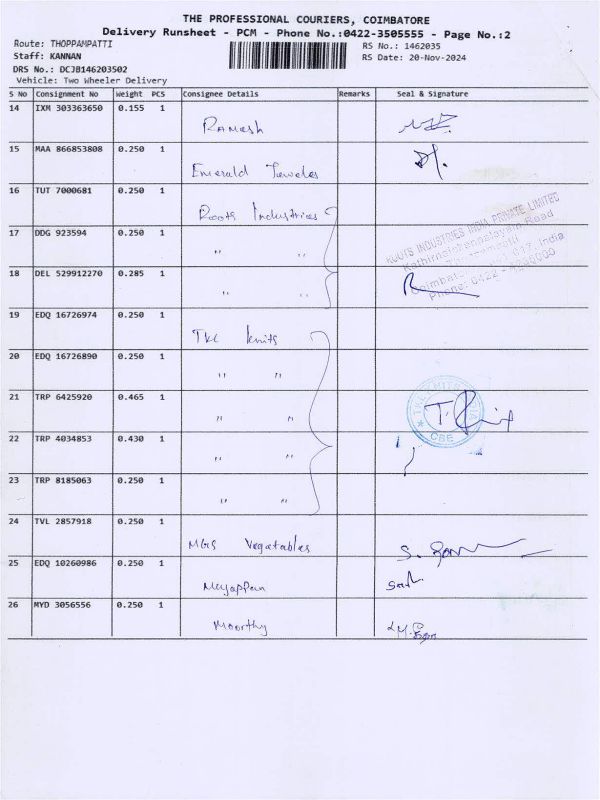 THE PROFESSIONAL COURIERS, COIMBATORE
Delivery Runsheet - PCM - Phone No.:0422-3505555 - Page No.:2
Route: THOPPAMPATTI
RS No.: 1462035
Staff: KANNAN
RS Date: 20-Nov-2024
DRS No.: DCJB146203502
Vehicle: Two Wheeler Delivery
S No Consignment No Weight PCS Consignee Details Remarks Seal & Signature
14 IXM 303363650 0.155 1
Ramesh
15 MAA 866853808 0.250 1
Emerald Jewels
16 TUT 7000681 0.250 1
Roots Industries
17 DDG 923594 0.250 1
" "
ROOTS INDUSTRIES INDIA PRIVATE LIMITED
Road
India
Phone: 0422 -
18 DEL 529912270 0.285 1
" "
19 EDQ 16726974 0.250 1
TKL knits
20 EDQ 16726890 0.250 1
" "
21 TRP 6425920 0.465 1
" "
CBE
22 TRP 4034853 0.430 1
" "
23 TRP 8185063 0.250 1
" "
24 TVL 2857918 0.250 1
MGS Vegatables
25 EDQ 10260986 0.250 1
Meyappan
26 MYD 3056556 0.250 1
Moorthy